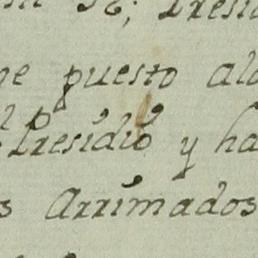 Presid
me puesto al
el Presidio y ha
s Arrimados